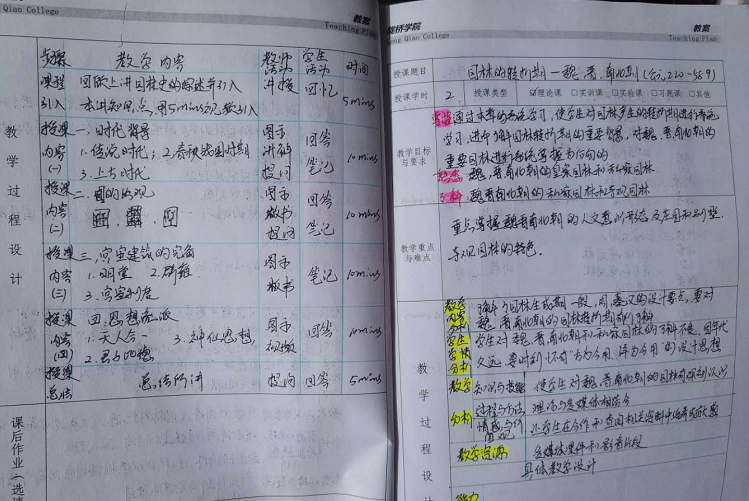 Qiao College
教案
Teaching Plan
步骤 教学内容 教师活动 学生活动 时间
课程引入 回顾上讲园林史的综述并引入 讲授 回忆 5mins
本讲知识点,用5mins完成引入
教学过程设计
授课内容(一) 一、时代背景 图示 回答 10mins
1.传说时代; 2.春秋战国时期 讲解 笔记
3.上古时代 提问
授课内容(二) 二、 图示 回答 10mins
板书 笔记
提问
授课内容(三) 三、宫室建筑的完备 图示 笔记 10mins
1.明堂 2.辟雍 板书
3.宫室制度
授课内容(四) 四、思想流派 图示 回答 10mins
1.天人合一 3.神仙思想, 视频
2.君子比德
授课总结 总结所讲 提问 回答 5mins
课后作业(选
陇桥学院
教案
ong Qiao College
Teaching Plan
授课题目 园林的转折期—魏、晋、南北朝(公元220-589)
授课学时 2 授课类型 ☑理论课 □实训课 □实验课 □习题课 □其他
教学目标与要求
掌握 通过本章的系统学习,使学生对园林产生的转折期进行系统
学习,进而了解园林转折期的重要背景,对魏、晋、南北朝的
重要园林进行系统掌握
魏、晋、南北朝的皇家园林和私家园林
了解 魏、晋、南北朝的私家园林和寺观园林
教学重点与难点
重点掌握魏晋南北朝的人文意识形态及庄园和别墅、
寺观园林的特色.
教学过程设
教学内容分析
魏、晋、南北朝的园林转折期的了解
学生学情分析 学生对魏、晋、南北朝和私家园林的了解不够,因年代
久远,要做到“古为今用,洋为今用”的设计思想
教学 分析
知识与技能 使学生对魏、晋、南北朝的园林有深刻认识
过程与方法 理论与多媒体相结合
情感与价值观 让学生在合作和查阅相关资料中
教学资源 多媒体课件和影音片段
具体教学设计
能力